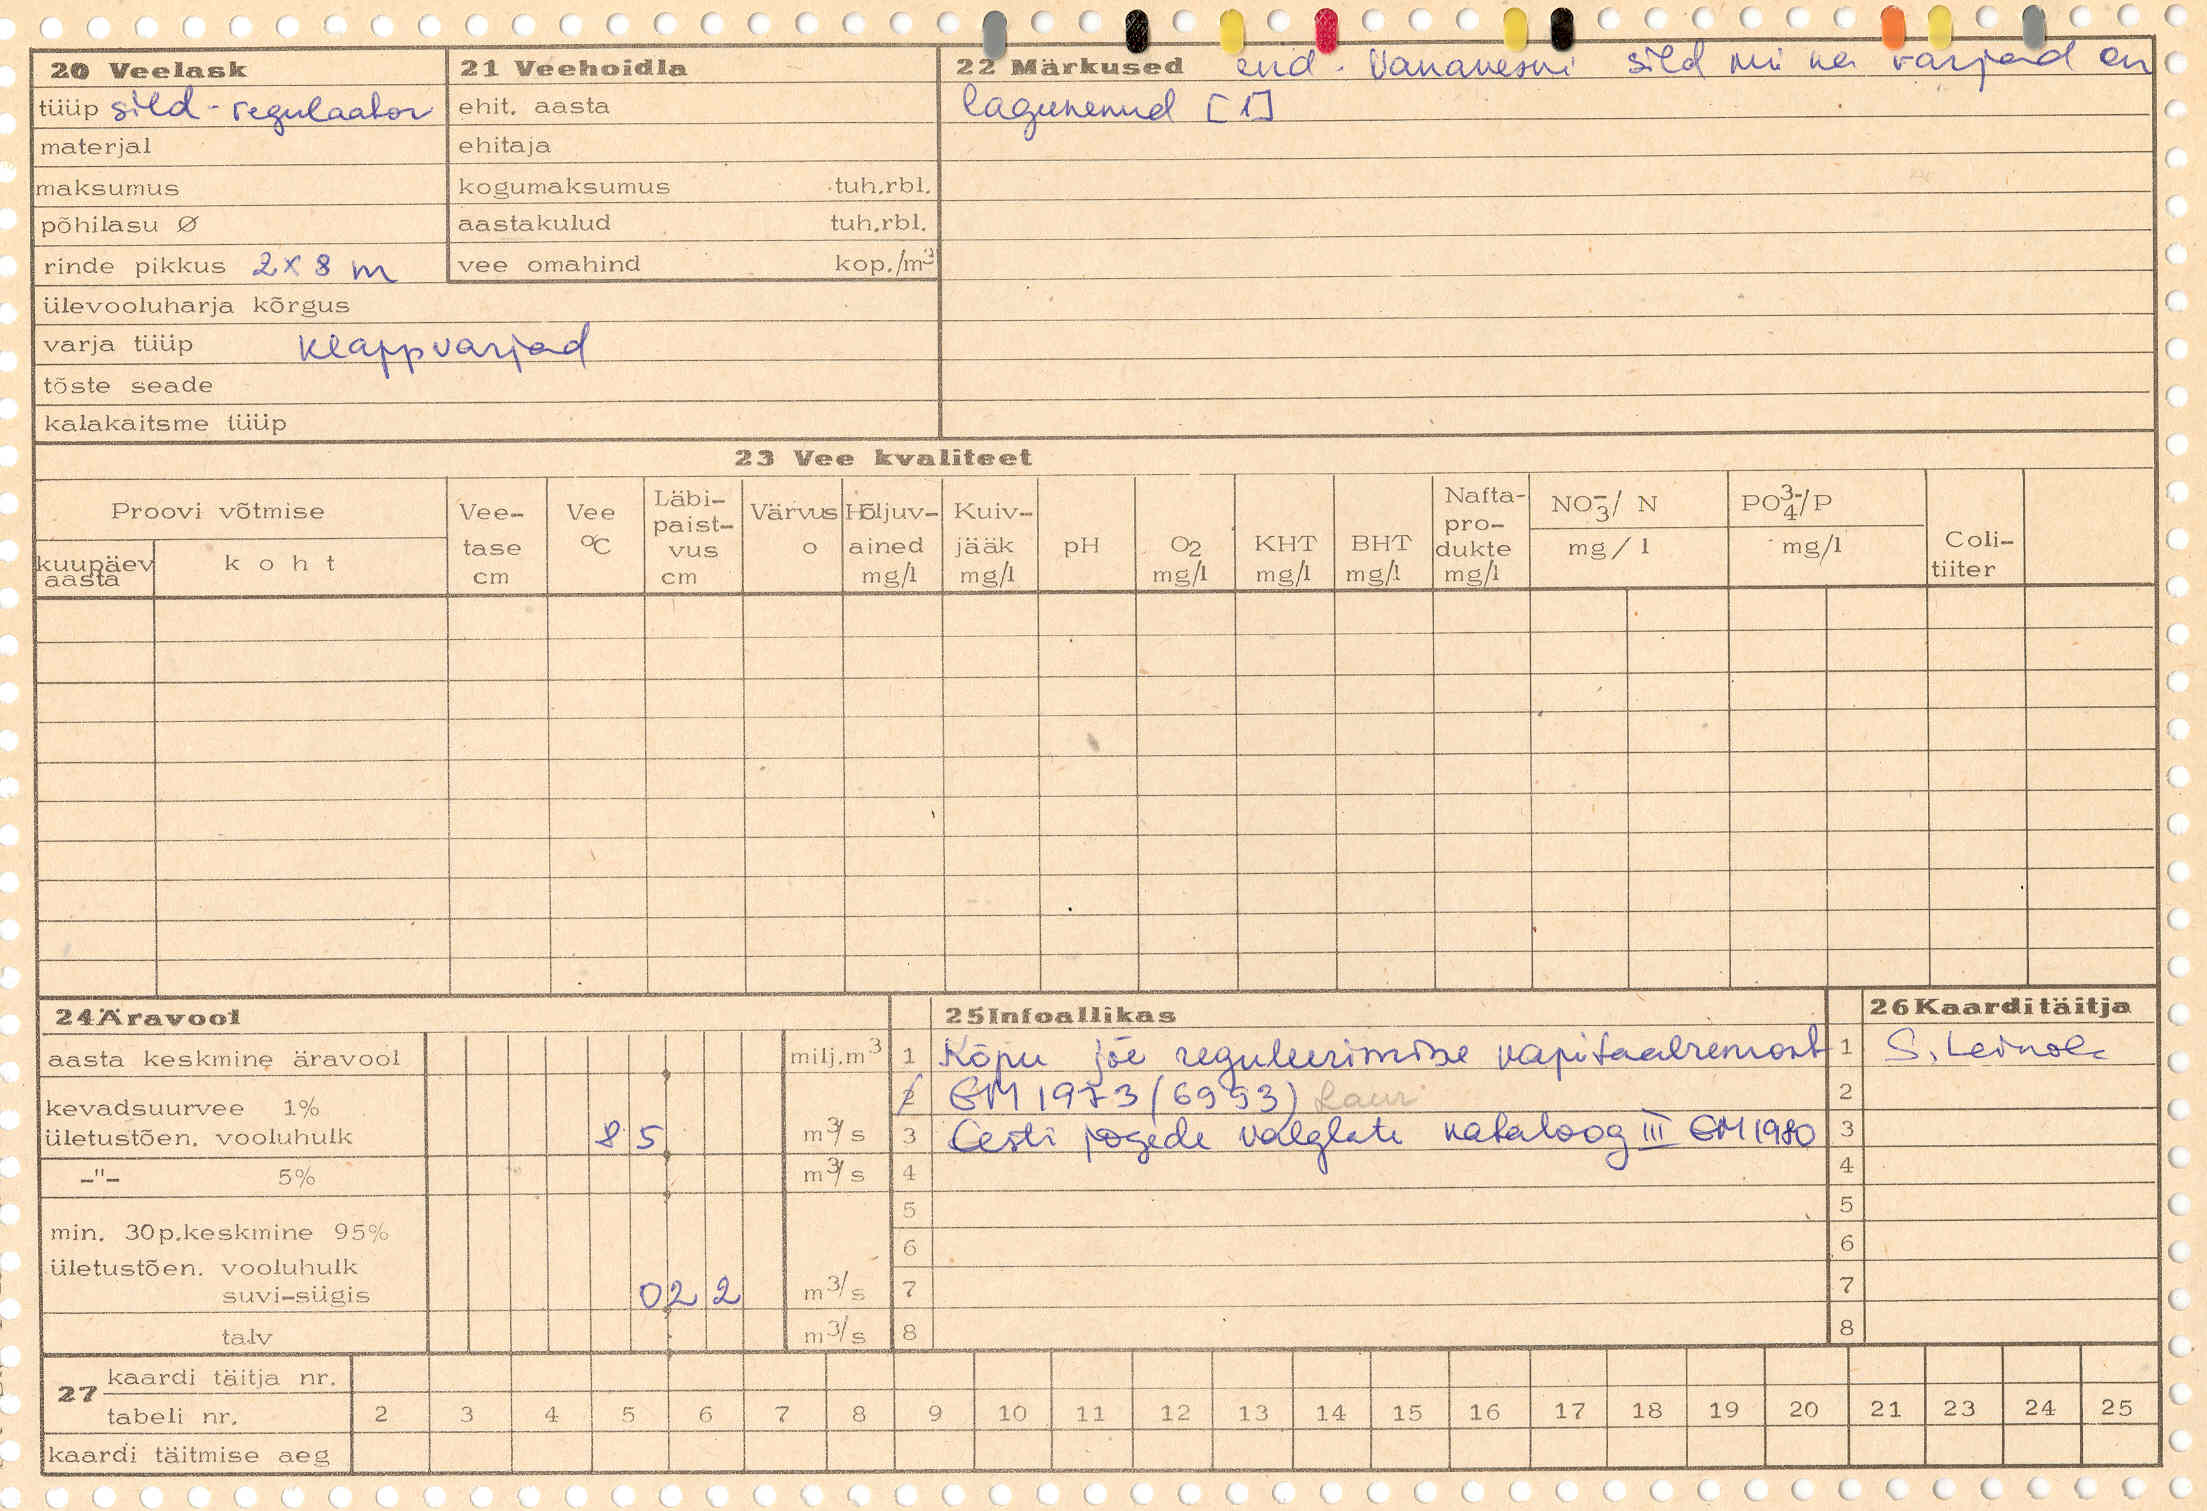 20 Veelask
tüüp sild-regulaator
materjal
maksumus
põhilasu Ø
rinde pikkus 2x8 m
ülevooluharja kõrgus
varja tüüp klappvarjad
tõste seade
kalakaitsme tüüp
21 Veehoidla
ehit. aasta
ehitaja
kogumaksumus tuh.rbl.
aastakulud tuh.rbl.
vee omahind kop./m³
22 Märkused end. Vanaveski sild ni ka varjad on
lagunenud [1]
23 Vee kvaliteet
Proovi võtmise
kuupäev aasta
koht
Vee-tase cm
Vee °C
Läbi-paist-vus cm
Värvus o
Hõljuv-ained mg/l
Kuiv-jääk mg/l
pH
O₂ mg/l
KHT mg/l
BHT mg/l
Nafta-pro-dukte mg/l
NO₃⁻/N mg/l
PO₄³⁻/P mg/l
Coli-tiiter
24 Äravool
aasta keskmine äravool milj.m³
kevadsuurvee 1%
ületustõen. vooluhulk 85 m³/s
-"- 5% m³/s
min. 30p.keskmine 95%
ületustõen. vooluhulk
suvi-sügis 022 m³/s
talv m³/s
25 Infoallikas
1 Kõpu jõe reguleerimise kapitaalremont
2 EM 1973 (6993) Laur
3 Eesti jõgede valglate kataloog III EM 1980
4
5
6
7
8
26 Kaarditäitja
1
2
3
4
5
6
7
8
27 kaardi täitja nr.
tabeli nr. 2 3 4 5 6 7 8 9 10 11 12 13 14 15 16 17 18 19 20 21 23 24 25
kaardi täitmise aeg